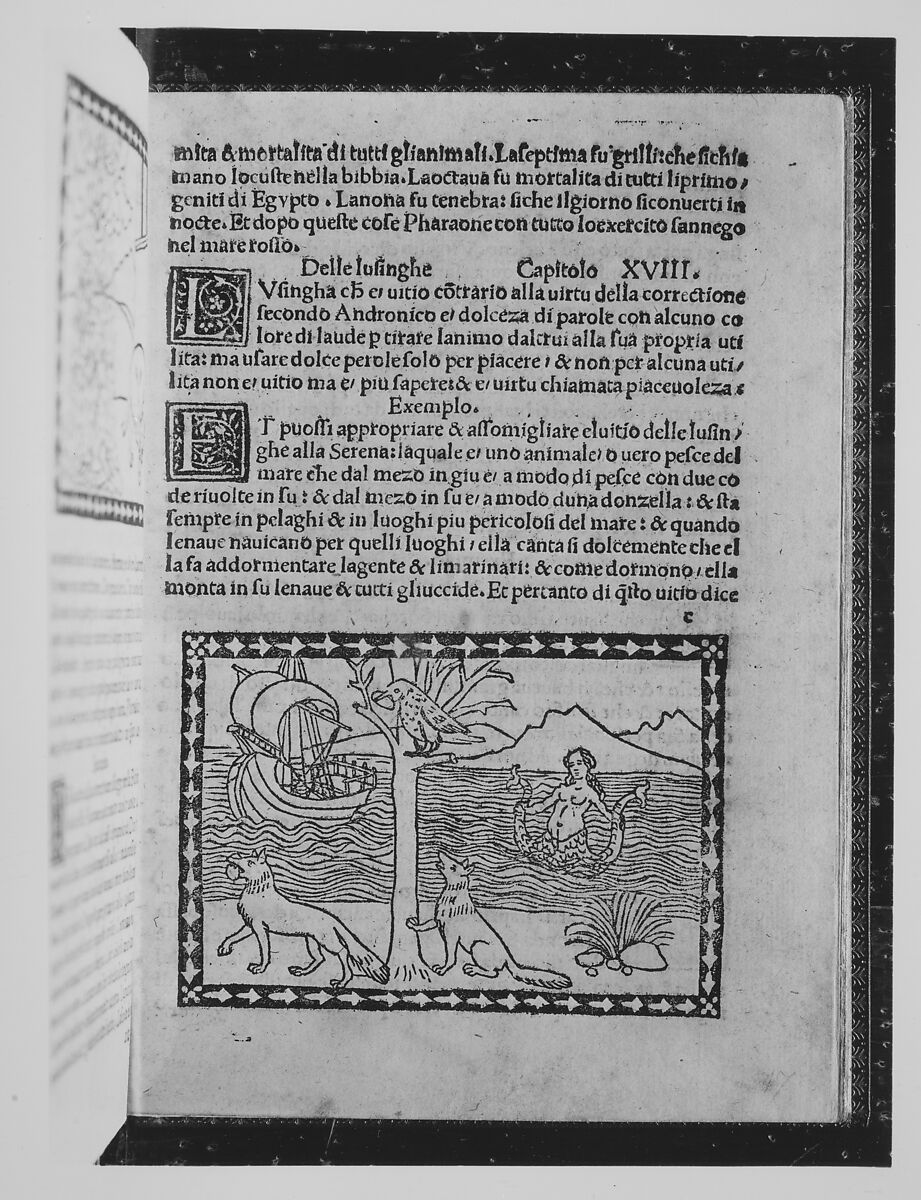 mita & mortalita di tutti glianimali. Laseptima fu grilli: che sichia
mano locuste nella bibbia. Laoctaua fu mortalita di tutti liprimo,
geniti di Egypto . Lanona fu tenebra: siche ilgiorno siconuerti in
nocte. Et dopo queste cose Pharaone con tutto loexercito sannego
nel mare rosso.
Delle lusinghe Capitolo XVIII.
LVsingha ch̄ e, uitio cōtrario alla uirtu della correctione
secondo Andronico e, dolceza di parole con alcuno co
lore di laude p tirare lanimo daltrui alla sua propria uti
lita: ma usare dolce perole solo per piacere, & non per alcuna uti,
lita non e, uitio ma e, piu sapere: & e, uirtu chiamata piaceuoleza.
Exemplo.
ET puossi appropriare & assomigliare eluitio delle lusin,
ghe alla Serena: laquale e, uno animale, o uero pesce del
mare che dal mezo in giu e, a modo di pesce con due co
de riuolte in su: & dal mezo in su e, a modo duna donzella: & sta
sempre in pelaghi & in luoghi piu pericolosi del mare: & quando
lenaue nauicano per quelli luoghi, ella canta si dolcemente che el
la fa addormentare lagente & limarinari: & come dormono, ella
monta in su lenaue & tutti gliuccide. Et pertanto di q̄sto uitio dice
c